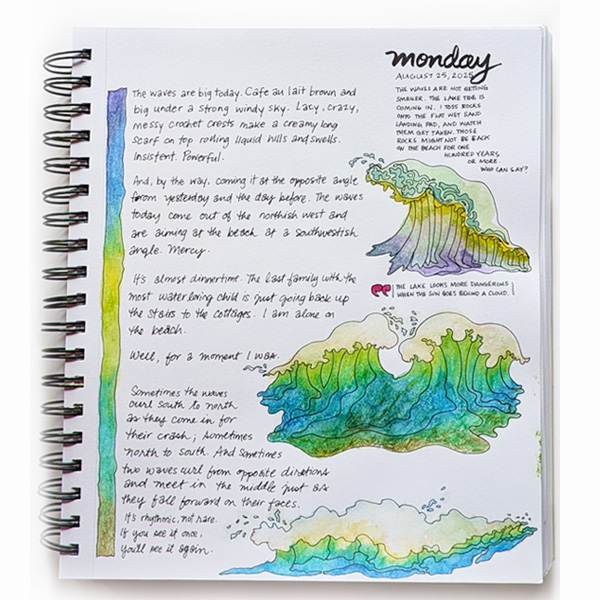 monday
AUGUST 25, 2025
THE WAVES ARE NOT GETTING
SMALLER. THE LAKE TIDE IS
COMING IN. I TOSS ROCKS
ONTO THE FLAT WET SAND
LANDING PAD, AND WATCH
THEM GET TAKEN. THOSE
ROCKS MIGHT NOT BE BACK
ON THE BEACH FOR ONE
HUNDRED YEARS
OR MORE.
WHO CAN SAY?
The waves are big today. Cafe au lait brown and
big under a strong windy sky. Lacy, crazy,
messy crochet crests make a creamy long
scarf on top rolling liquid hills and swells.
Insistent. Powerful.
And, by the way, coming it at the opposite angle
from yesterday and the day before. The waves
today come out of the northish west and
are aiming at the beach at a southwestish
angle. Mercy.
It's almost dinnertime. The last family with the
most water loving child is just going back up
the stairs to the cottages. I am alone on
the beach.
Well, for a moment I was.
THE LAKE LOOKS MORE DANGEROUS
WHEN THE SUN GOES BEHIND A CLOUD.
Sometimes the waves
curl south to north
as they come in for
their crash; sometimes
north to south. And sometimes
two waves curl from opposite directions
and meet in the middle just as
they fall forward on their faces.
It's rhythmic, not rare.
If you see it once,
you'll see it again.